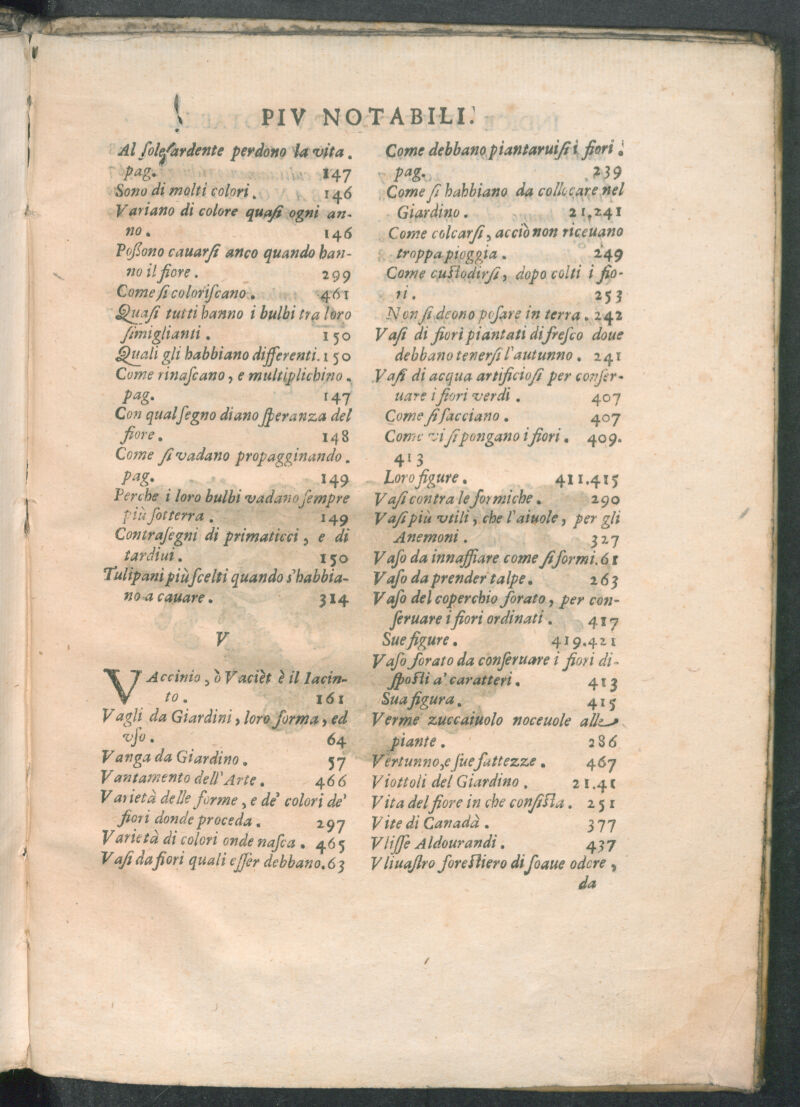 PIV NOTABILI.
Al ſole ardente perdono la vita.
pag. 147
Sono di molti colori. 146
Variano di colore quaſi ogni an-
no. 146
Poſſono cauarſi anco quando han-
no il fiore. 299
Come ſi coloriſcano. 461
Quaſi tutti hanno i bulbi tra loro
ſimiglianti. 150
Quali gli habbiano differenti. 150
Come rinaſcano, e multiplichino.
pag. 147
Con qual ſegno diano ſperanza del
fiore. 148
Come ſi vadano propagginando.
pag. 149
Perche i loro bulbi vadano ſempre
più ſotterra. 149
Contraſegni di primaticci, e di
tardiui. 150
Tulipani più ſcelti quando s'habbia-
no a cauare. 314
V
VAccinio, ò Vaciet è il Iacin-
to. 161
Vagli da Giardini, loro forma, ed
vſo. 64
Vanga da Giardino. 57
Vantamento dell'Arte. 466
Varietà delle forme, e de' colori de'
fiori donde proceda. 297
Varietà di colori onde naſca. 465
Vaſi da fiori quali eſſer debbano. 63
Come debbano piantaruiſi i fiori.
pag. 239
Come ſi habbiano da collocare nel
Giardino. 21.241
Come colcarſi, acciò non riceuano
troppa pioggia. 249
Come cuſtodirſi, dopo colti i fio-
ri. 253
Non ſi deono poſare in terra. 242
Vaſi di fiori piantati di freſco doue
debbano tenerſi l'autunno. 241
Vaſi di acqua artificioſi per conſer-
uare i fiori verdi. 407
Come ſi facciano. 407
Come vi ſi pongano i fiori. 409.
413
Loro figure. 411.415
Vaſi contra le formiche. 290
Vaſi più vtili, che l'aiuole, per gli
Anemoni. 327
Vaſo da innaffiare come ſi formi. 61
Vaſo da prender talpe. 263
Vaſo del coperchio forato, per con-
ſeruare i fiori ordinati. 417
Sue figure. 419.421
Vaſo forato da conſeruare i fiori di-
ſpoſti a' caratteri. 413
Sua figura. 415
Verme zuccaiuolo noceuole alle
piante. 286
Vertunno, e ſue fattezze. 467
Viottoli del Giardino. 21.41
Vita del fiore in che conſiſta. 251
Vite di Canadà. 377
Vliſſe Aldourandi. 437
Vliuaſtro foreſtiero di ſoaue odore,
da